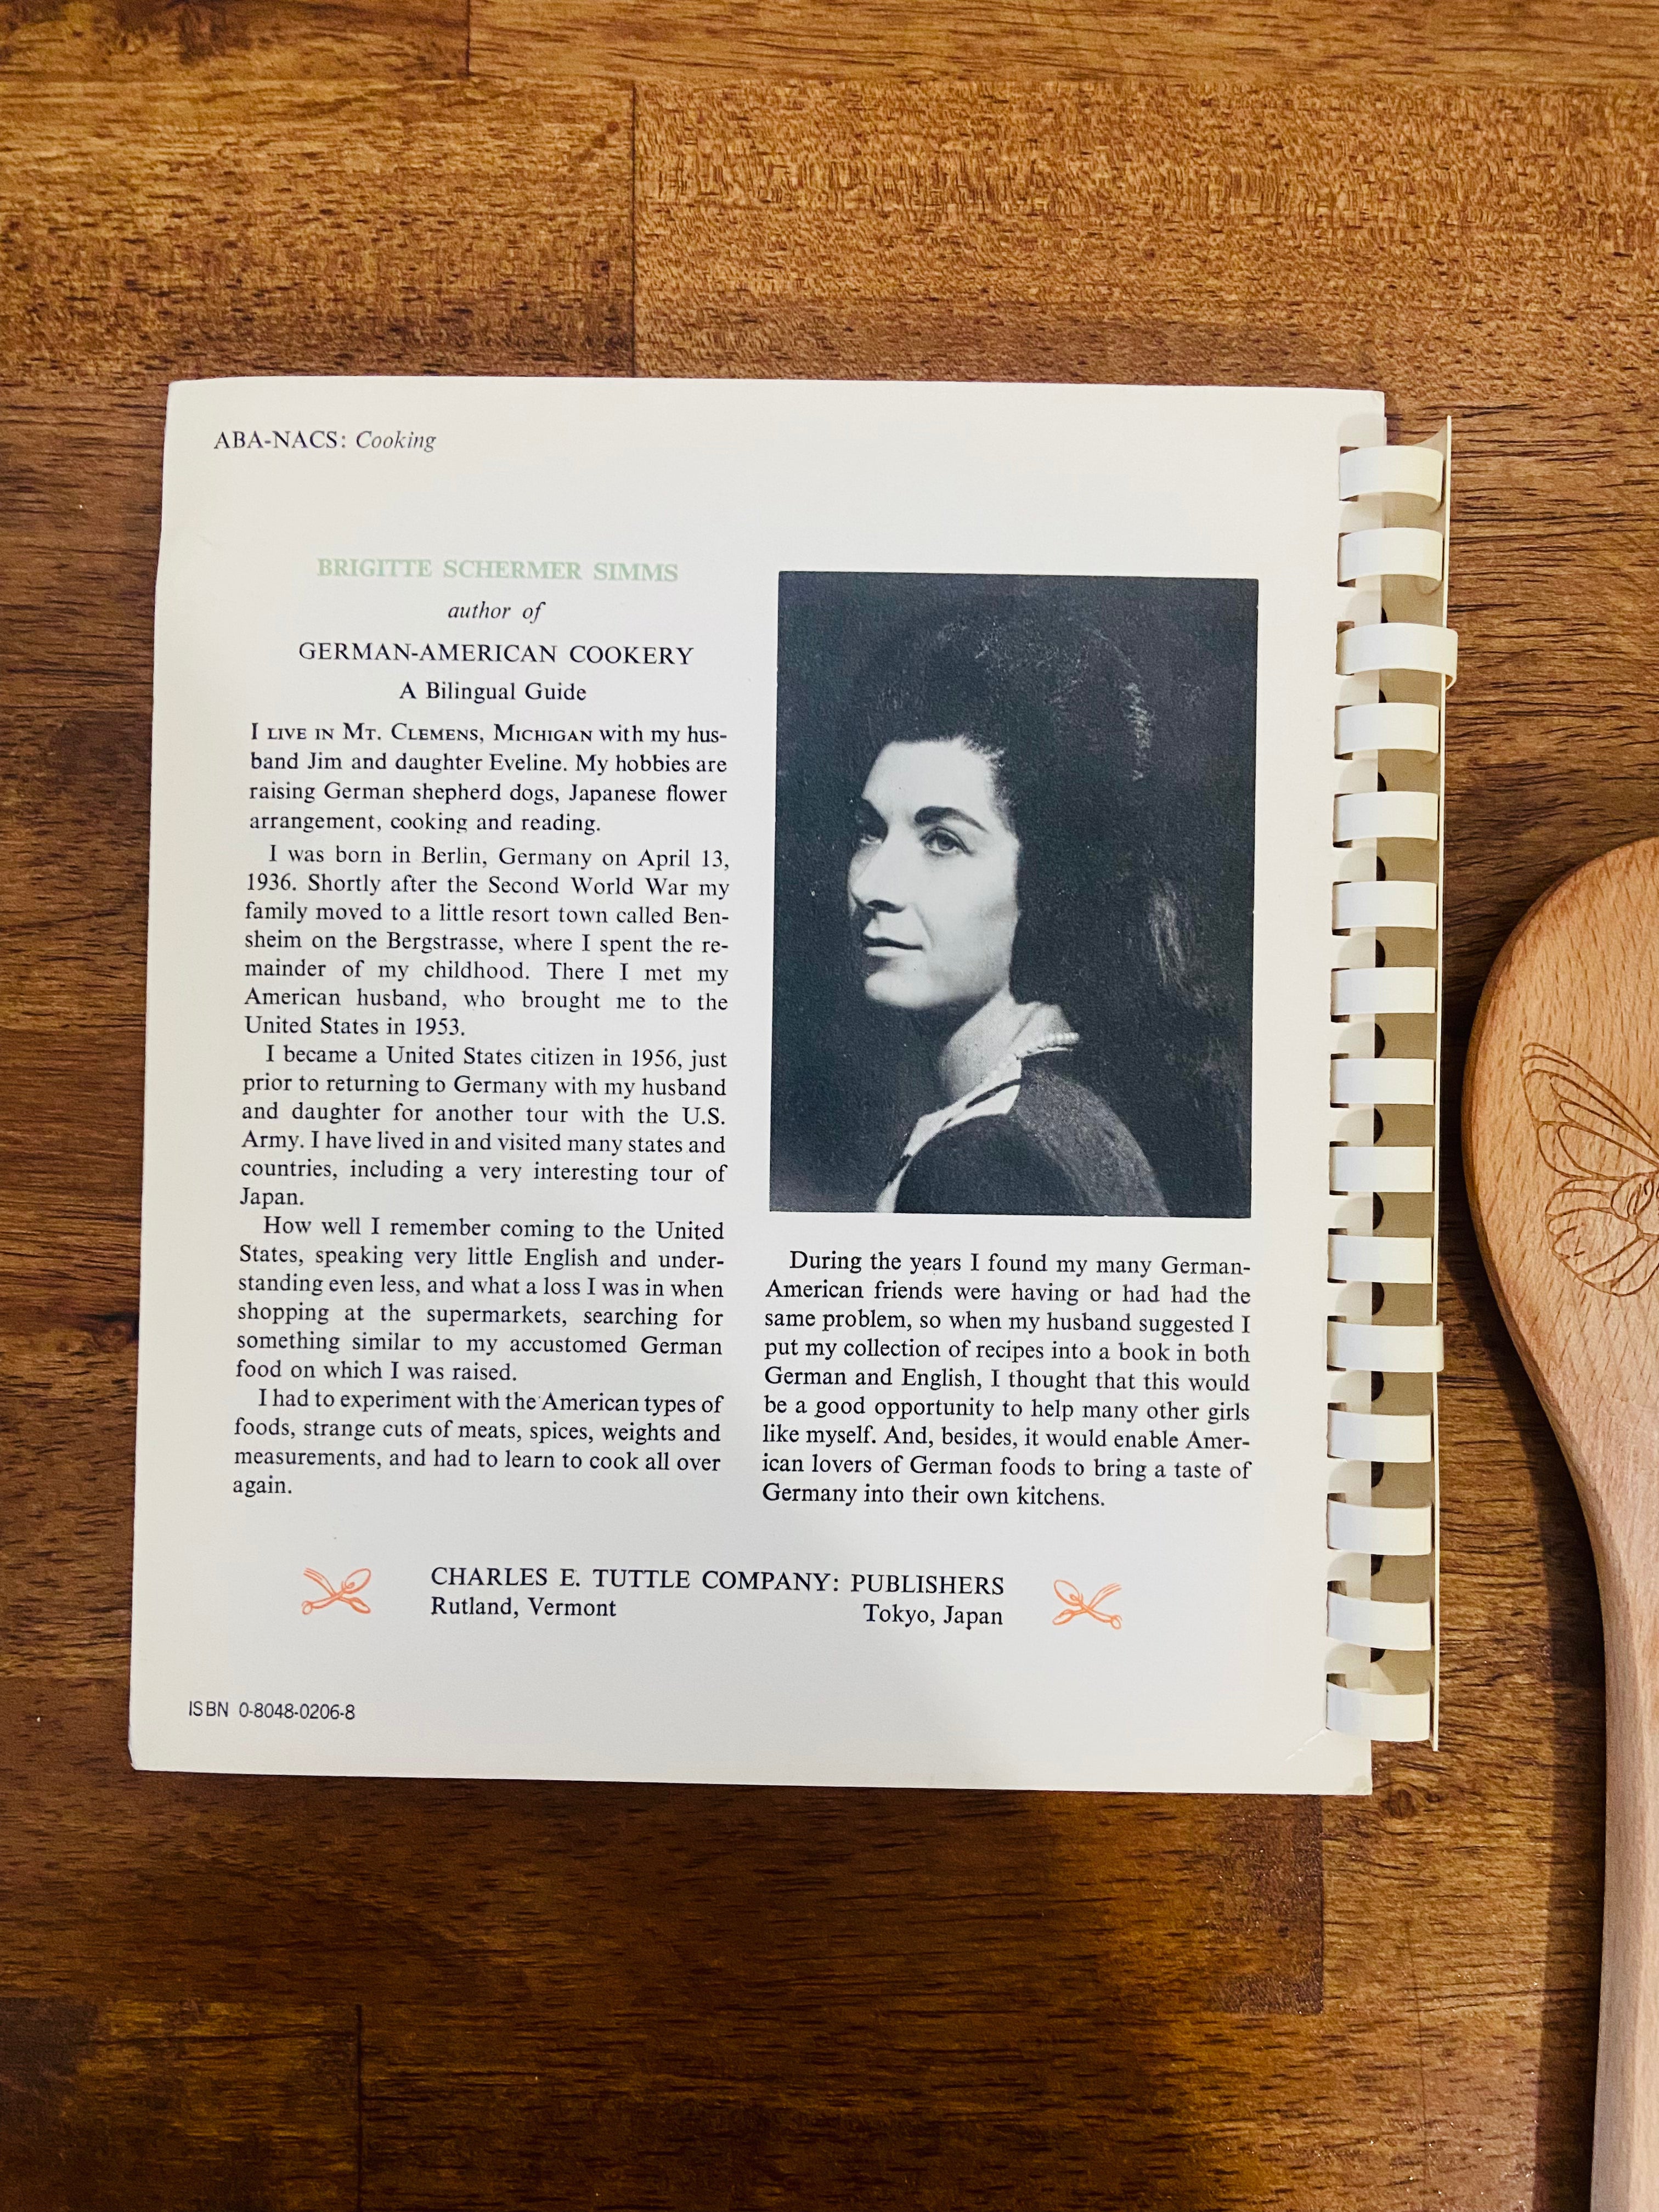 ABA-NACS: Cooking
BRIGITTE SCHERMER SIMMS
author of
GERMAN-AMERICAN COOKERY
A Bilingual Guide
I LIVE IN MT. CLEMENS, MICHIGAN with my hus-
band Jim and daughter Eveline. My hobbies are
raising German shepherd dogs, Japanese flower
arrangement, cooking and reading.
I was born in Berlin, Germany on April 13,
1936. Shortly after the Second World War my
family moved to a little resort town called Ben-
sheim on the Bergstrasse, where I spent the re-
mainder of my childhood. There I met my
American husband, who brought me to the
United States in 1953.
I became a United States citizen in 1956, just
prior to returning to Germany with my husband
and daughter for another tour with the U.S.
Army. I have lived in and visited many states and
countries, including a very interesting tour of
Japan.
How well I remember coming to the United
States, speaking very little English and under-
standing even less, and what a loss I was in when
shopping at the supermarkets, searching for
something similar to my accustomed German
food on which I was raised.
I had to experiment with the American types of
foods, strange cuts of meats, spices, weights and
measurements, and had to learn to cook all over
again.
During the years I found my many German-
American friends were having or had had the
same problem, so when my husband suggested I
put my collection of recipes into a book in both
German and English, I thought that this would
be a good opportunity to help many other girls
like myself. And, besides, it would enable Amer-
ican lovers of German foods to bring a taste of
Germany into their own kitchens.
CHARLES E. TUTTLE COMPANY: PUBLISHERS
Rutland, Vermont Tokyo, Japan
ISBN 0-8048-0206-8